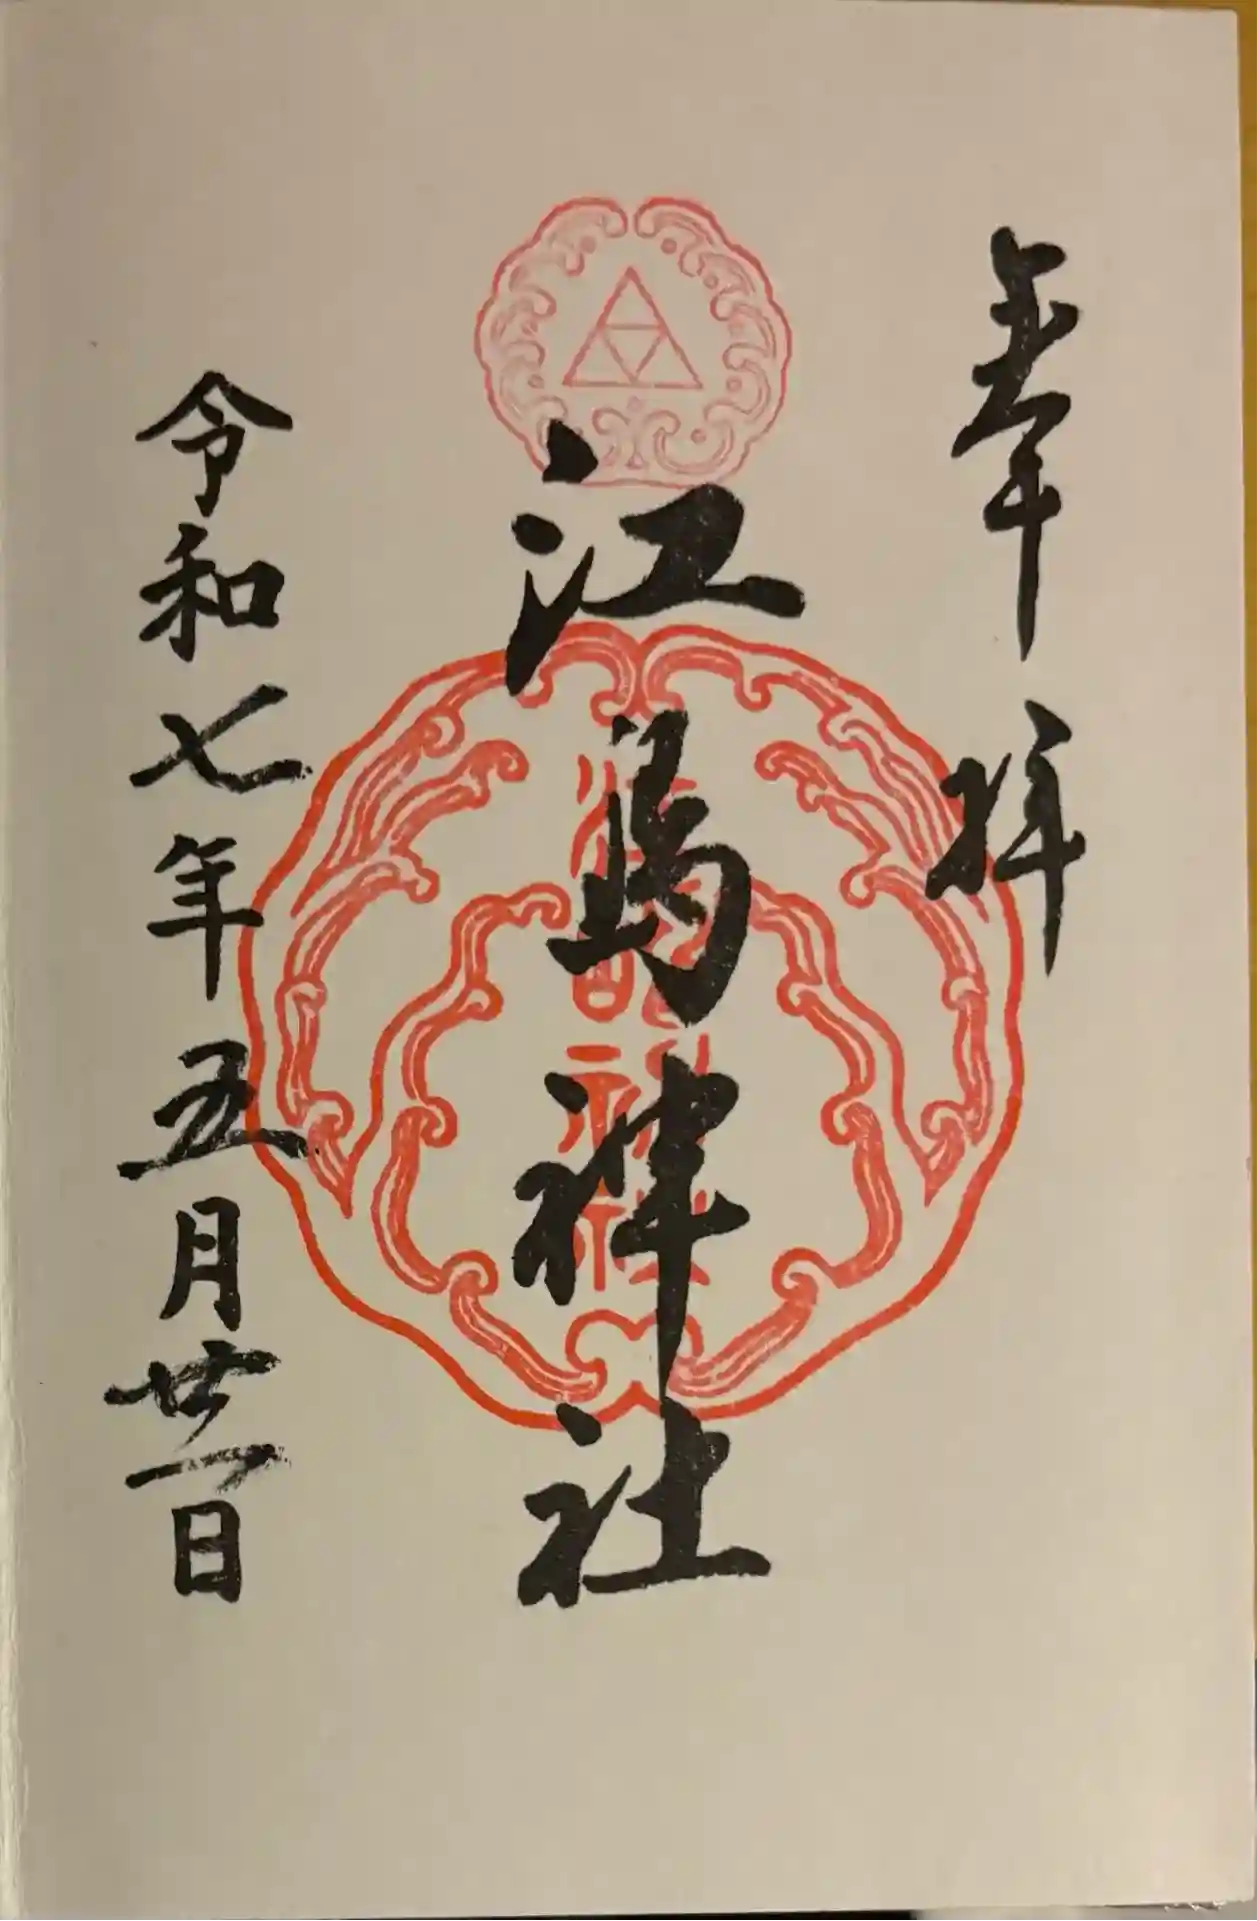 奉拝
江島神社
令和七年五月廿一日